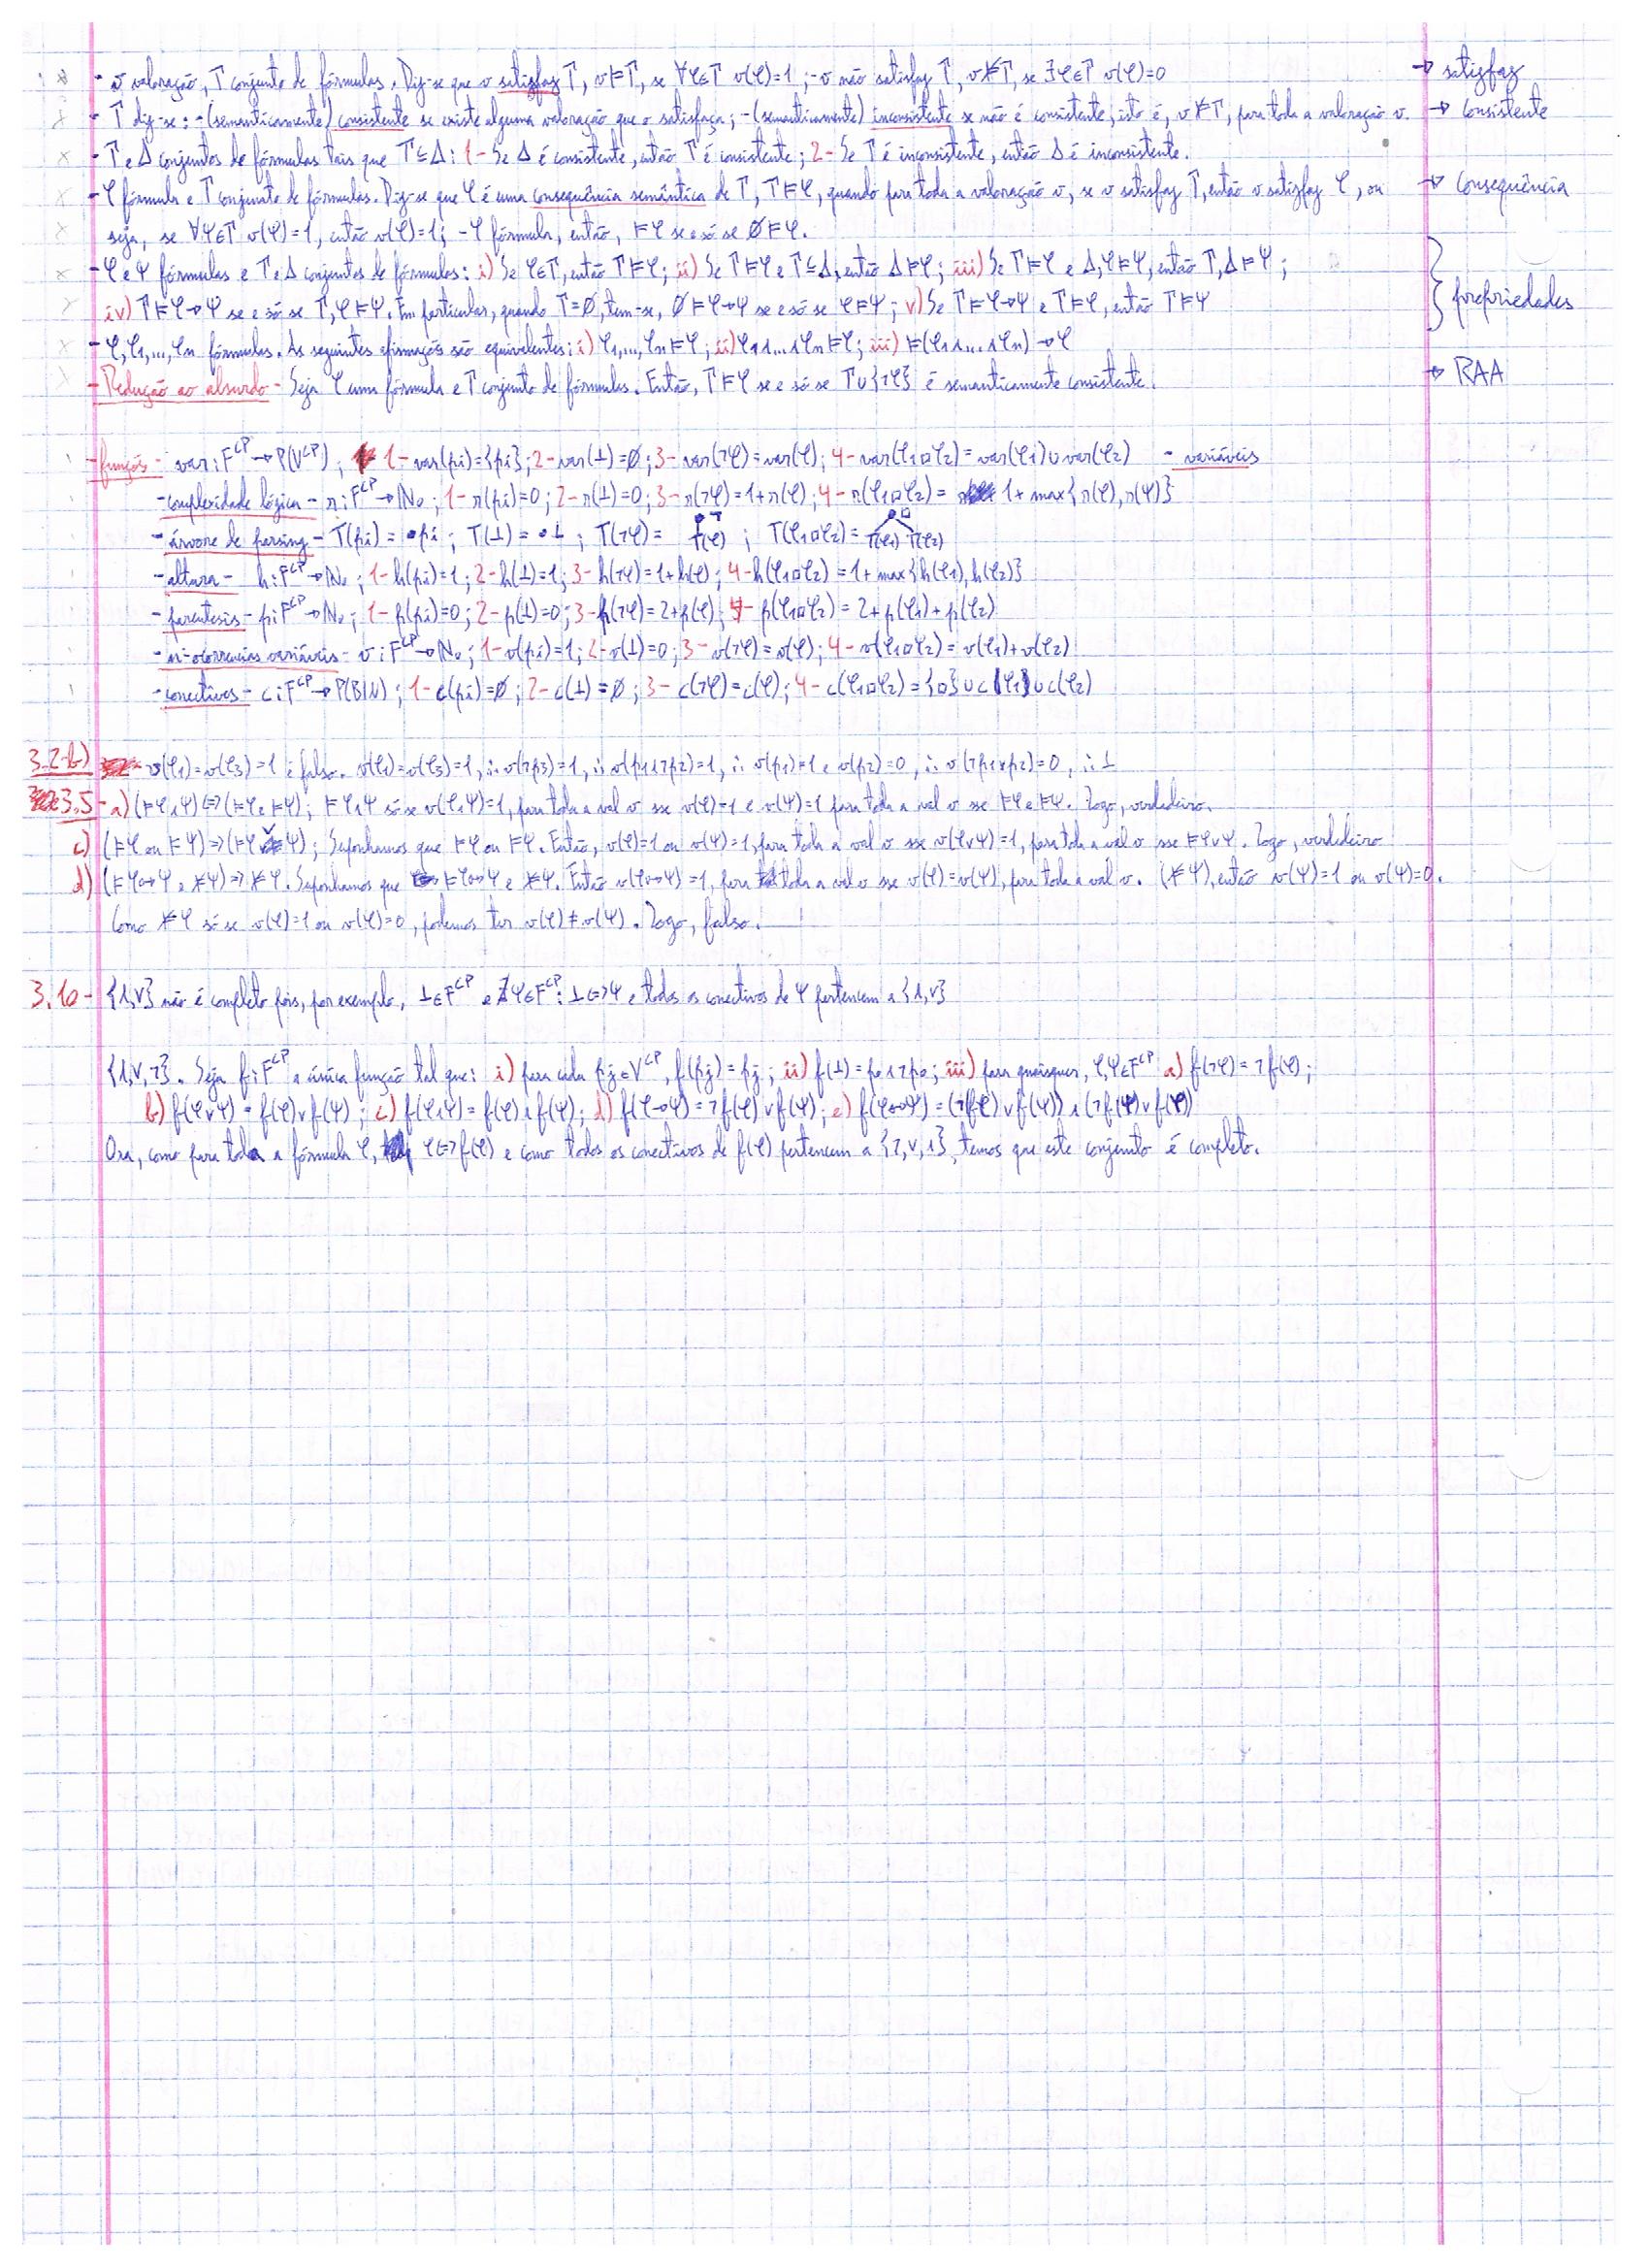 - v valoração, Γ conjunto de fórmulas. Diz-se que v satisfaz Γ, v⊨Γ, se ∀φ∈Γ v(φ)=1 ; - v não satisfaz Γ, v⊭Γ, se ∃φ∈Γ v(φ)=0 → satisfaz
- Γ diz-se: - (semanticamente) consistente se existe alguma valoração que o satisfaça; - (semanticamente) inconsistente se não é consistente, isto é, v⊭Γ, para toda a valoração v. → Consistente
- Γ e Δ conjuntos de fórmulas tais que Γ⊆Δ: 1- Se Δ é consistente, então Γ é consistente; 2- Se Γ é inconsistente, então Δ é inconsistente.
- φ fórmula e Γ conjunto de fórmulas. Diz-se que φ é uma consequência semântica de Γ, Γ⊨φ, quando para toda a valoração v, se v satisfaz Γ, então v satisfaz φ, ou → Consequência
seja, se ∀ψ∈Γ v(ψ)=1, então v(φ)=1; - φ fórmula, então, ⊨φ se e só se ∅⊨φ.
- φ e ψ fórmulas e Γ e Δ conjuntos de fórmulas: i) Se φ∈Γ, então Γ⊨φ; ii) Se Γ⊨φ e Γ⊆Δ, então Δ⊨φ; iii) Se Γ⊨φ e Δ,φ⊨ψ, então Γ,Δ⊨ψ;
iv) Γ⊨φ→ψ se e só se Γ,φ⊨ψ. Em particular, quando Γ=∅, tem-se, ∅⊨φ→ψ se e só se φ⊨ψ; v) Se Γ⊨φ→ψ e Γ⊨φ, então Γ⊨ψ } propriedades
- φ,φ1,...,φn fórmulas. As seguintes afirmações são equivalentes: i) φ1,...,φn⊨φ; ii) φ1∧...∧φn⊨φ; iii) ⊨(φ1∧...∧φn)→φ
- Redução ao absurdo - Seja φ uma fórmula e Γ conjunto de fórmulas. Então, Γ⊨φ se e só se Γ∪{¬φ} é semanticamente consistente. → RAA
- funções - var: F^CP→P(V^CP); 1- var(pi)={pi}; 2- var(⊥)=∅; 3- var(¬φ)=var(φ); 4- var(φ1□φ2)=var(φ1)∪var(φ2) - variáveis
- complexidade lógica - r: F^CP→N0; 1- r(pi)=0; 2- r(⊥)=0; 3- r(¬φ)=1+r(φ); 4- r(φ1□φ2)= 1+max{r(φ),r(ψ)}
- árvore de parsing - T(pi)= •pi; T(⊥)= •⊥; T(¬φ)= •¬ T(φ) ; T(φ1□φ2)= •□ T(φ1) T(φ2)
- altura - h: F^CP→N0; 1- h(pi)=1; 2- h(⊥)=1; 3- h(¬φ)=1+h(φ); 4- h(φ1□φ2)=1+max{h(φ1),h(φ2)}
- parentesis - p: F^CP→N0; 1- p(pi)=0; 2- p(⊥)=0; 3- p(¬φ)=2+p(φ); 4- p(φ1□φ2)=2+p(φ1)+p(φ2)
- nº ocorrencias variáveis - v: F^CP→N0; 1- v(pi)=1; 2- v(⊥)=0; 3- v(¬φ)=v(φ); 4- v(φ1□φ2)=v(φ1)+v(φ2)
- conectivos - c: F^CP→P(BIN); 1- c(pi)=∅; 2- c(⊥)=∅; 3- c(¬φ)=c(φ); 4- c(φ1□φ2)={□}∪c(φ1)∪c(φ2)
3.2-b) v(φ1)=v(φ3)=1 é falso. v(φ1)=v(φ3)=1, ∴ v(¬p3)=1, ∴ v(p1∧¬p2)=1, ∴ v(p1)=1 e v(p2)=0, ∴ v(¬p1∨p2)=0, ∴ ⊥
3.5 - a) (⊨φ∧ψ)⇔(⊨φ e ⊨ψ); ⊨φ∧ψ só se v(φ∧ψ)=1, para toda a val v sse v(φ)=1 e v(ψ)=1 para toda a val v se ⊨φ e ⊨ψ. Logo, verdadeiro.
c) (⊨φ ou ⊨ψ)⇒(⊨φ∨ψ); Suponhamos que ⊨φ ou ⊨ψ. Então, v(φ)=1 ou v(ψ)=1, para toda a val v sse v(φ∨ψ)=1, para toda a val v sse ⊨φ∨ψ. Logo, verdadeiro
d) (⊨φ↔ψ e ⊭ψ)⇒⊭φ. Suponhamos que ⊨φ↔ψ e ⊭ψ. Então v(φ↔ψ)=1, para toda a val v sse v(φ)=v(ψ), para toda a val v. (⊭ψ), então v(ψ)=1 ou v(ψ)=0.
Como ⊭φ só se v(φ)=1 ou v(φ)=0, podemos ter v(φ)≠v(ψ). Logo, falso.
3.10 - {∧,∨} não é completo pois, por exemplo, ⊥∈F^CP e ∄ψ∈F^CP: ⊥⇔ψ e todos os conectivos de ψ pertencem a {∧,∨}
{∧,∨,¬}. Seja f: F^CP a única função tal que: i) para cada pj∈V^CP, f(pj)=pj; ii) f(⊥)=p0∧¬p0; iii) para quaisquer, φ,ψ∈F^CP a) f(¬φ)=¬f(φ);
b) f(φ∨ψ)=f(φ)∨f(ψ); c) f(φ∧ψ)=f(φ)∧f(ψ); d) f(φ→ψ)=¬f(φ)∨f(ψ); e) f(φ↔ψ)=(¬f(φ)∨f(ψ))∧(¬f(ψ)∨f(φ))
Ora, como para toda a fórmula φ, φ⇔f(φ) e como todos os conectivos de f(φ) pertencem a {¬,∨,∧}, temos que este conjunto é completo.